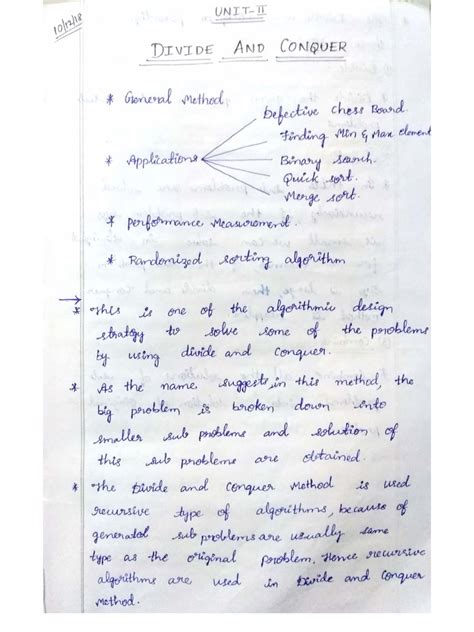 10/12/18
UNIT-II
DIVIDE AND CONQUER
* General Method
* Applications
Defective Chess Board.
Finding Min & Max element
Binary search.
Quick sort.
Merge sort.
* Performance Measurement.
* Randomized sorting algorithm
* This is one of the algorithmic design
strategy to solve some of the problems
by using divide and conquer.
* As the name suggests, in this method, the
big problem is broken down into
smaller sub problems and solution of
this sub problems are obtained.
* The Divide and Conquer Method is used
recursive type of algorithms, because of
generated sub problems are usually same
type as the original problem. Hence recursive
algorithms are used in Divide and Conquer
Method.